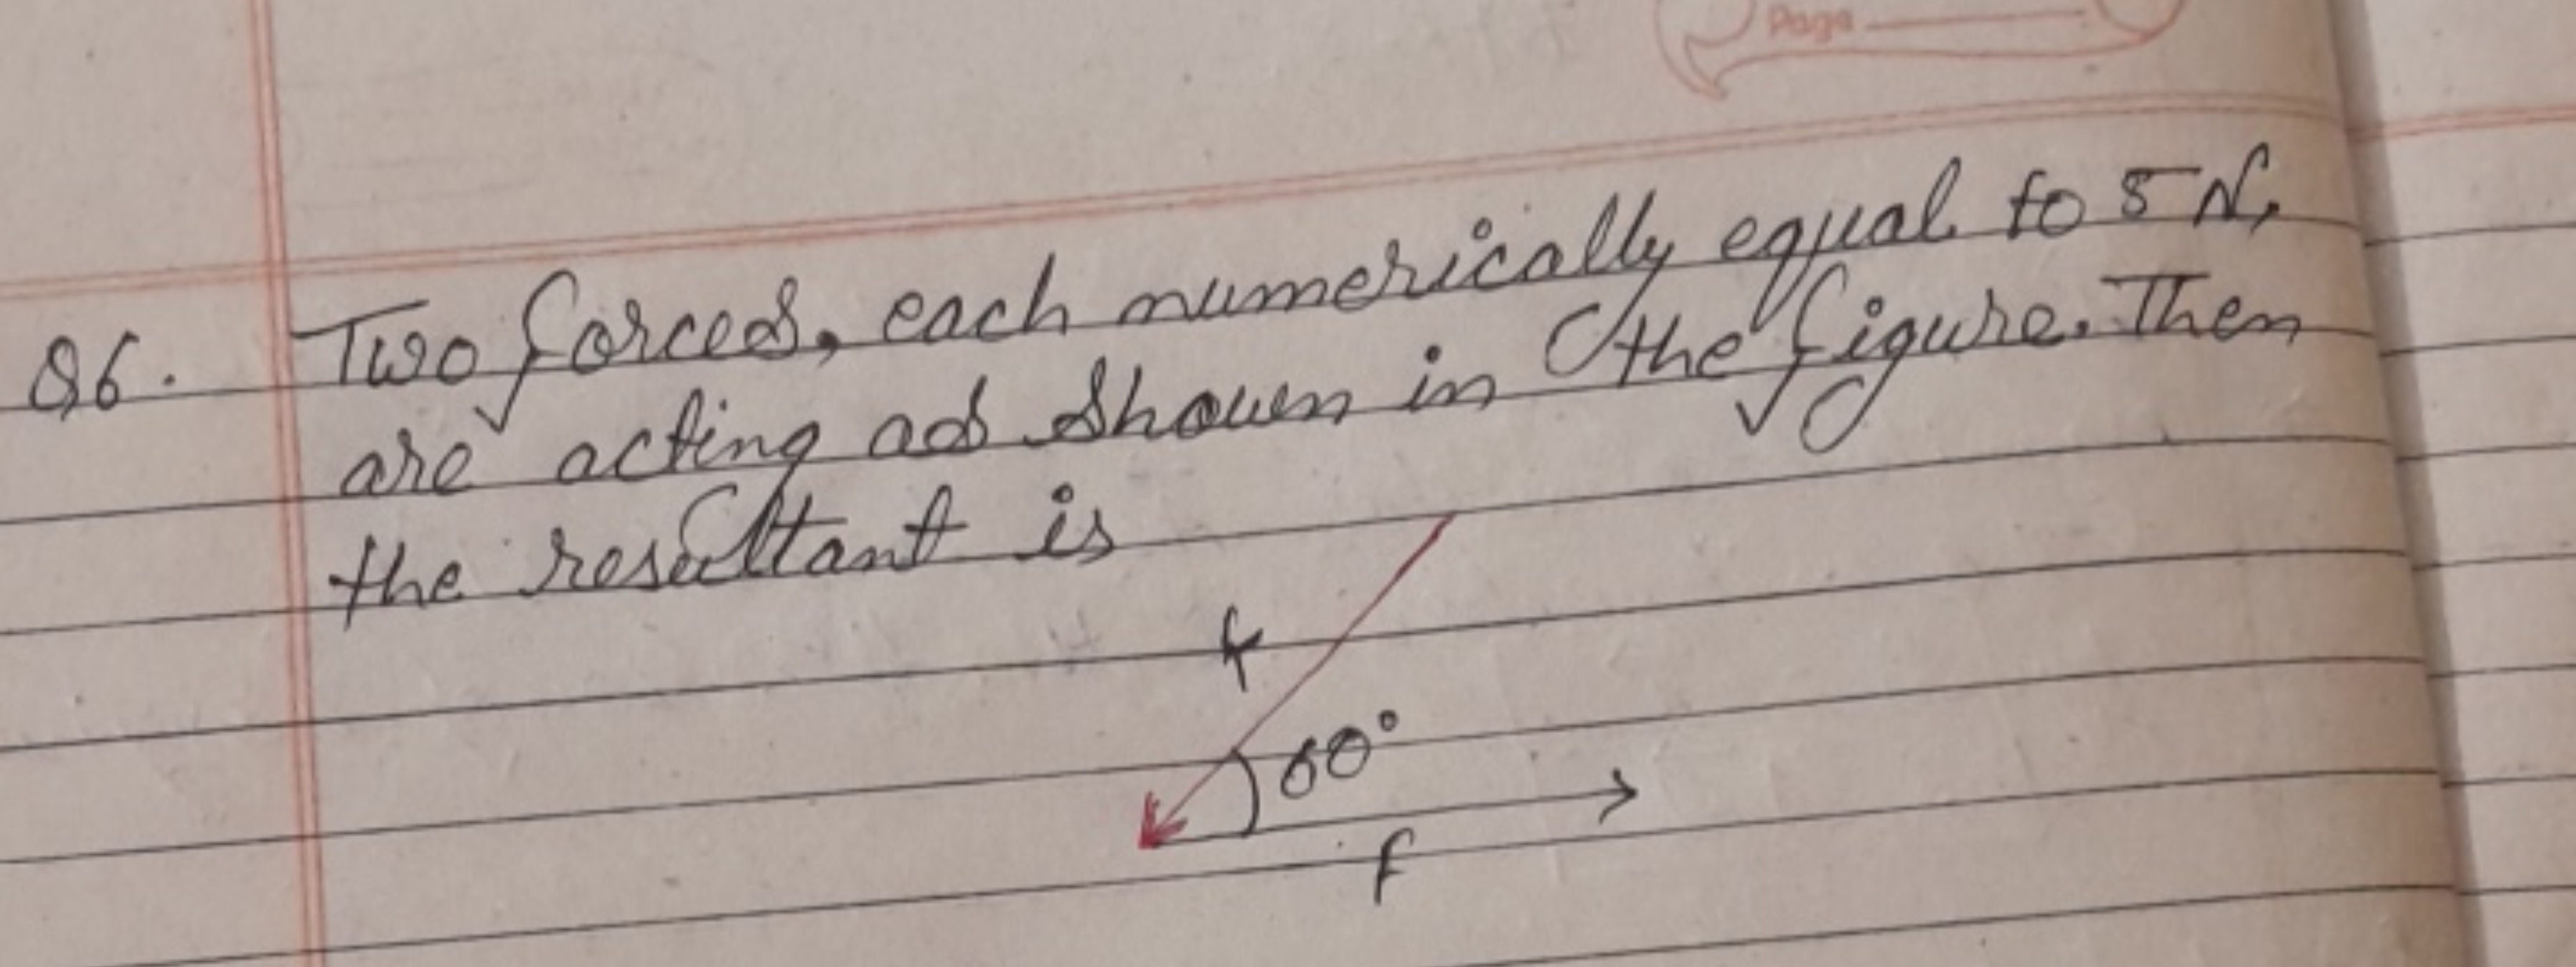 Page
Q6. Two forces, each numerically equal to 5 N,
are acting as shown in the figure. Then
the resultant is
F
60°
F